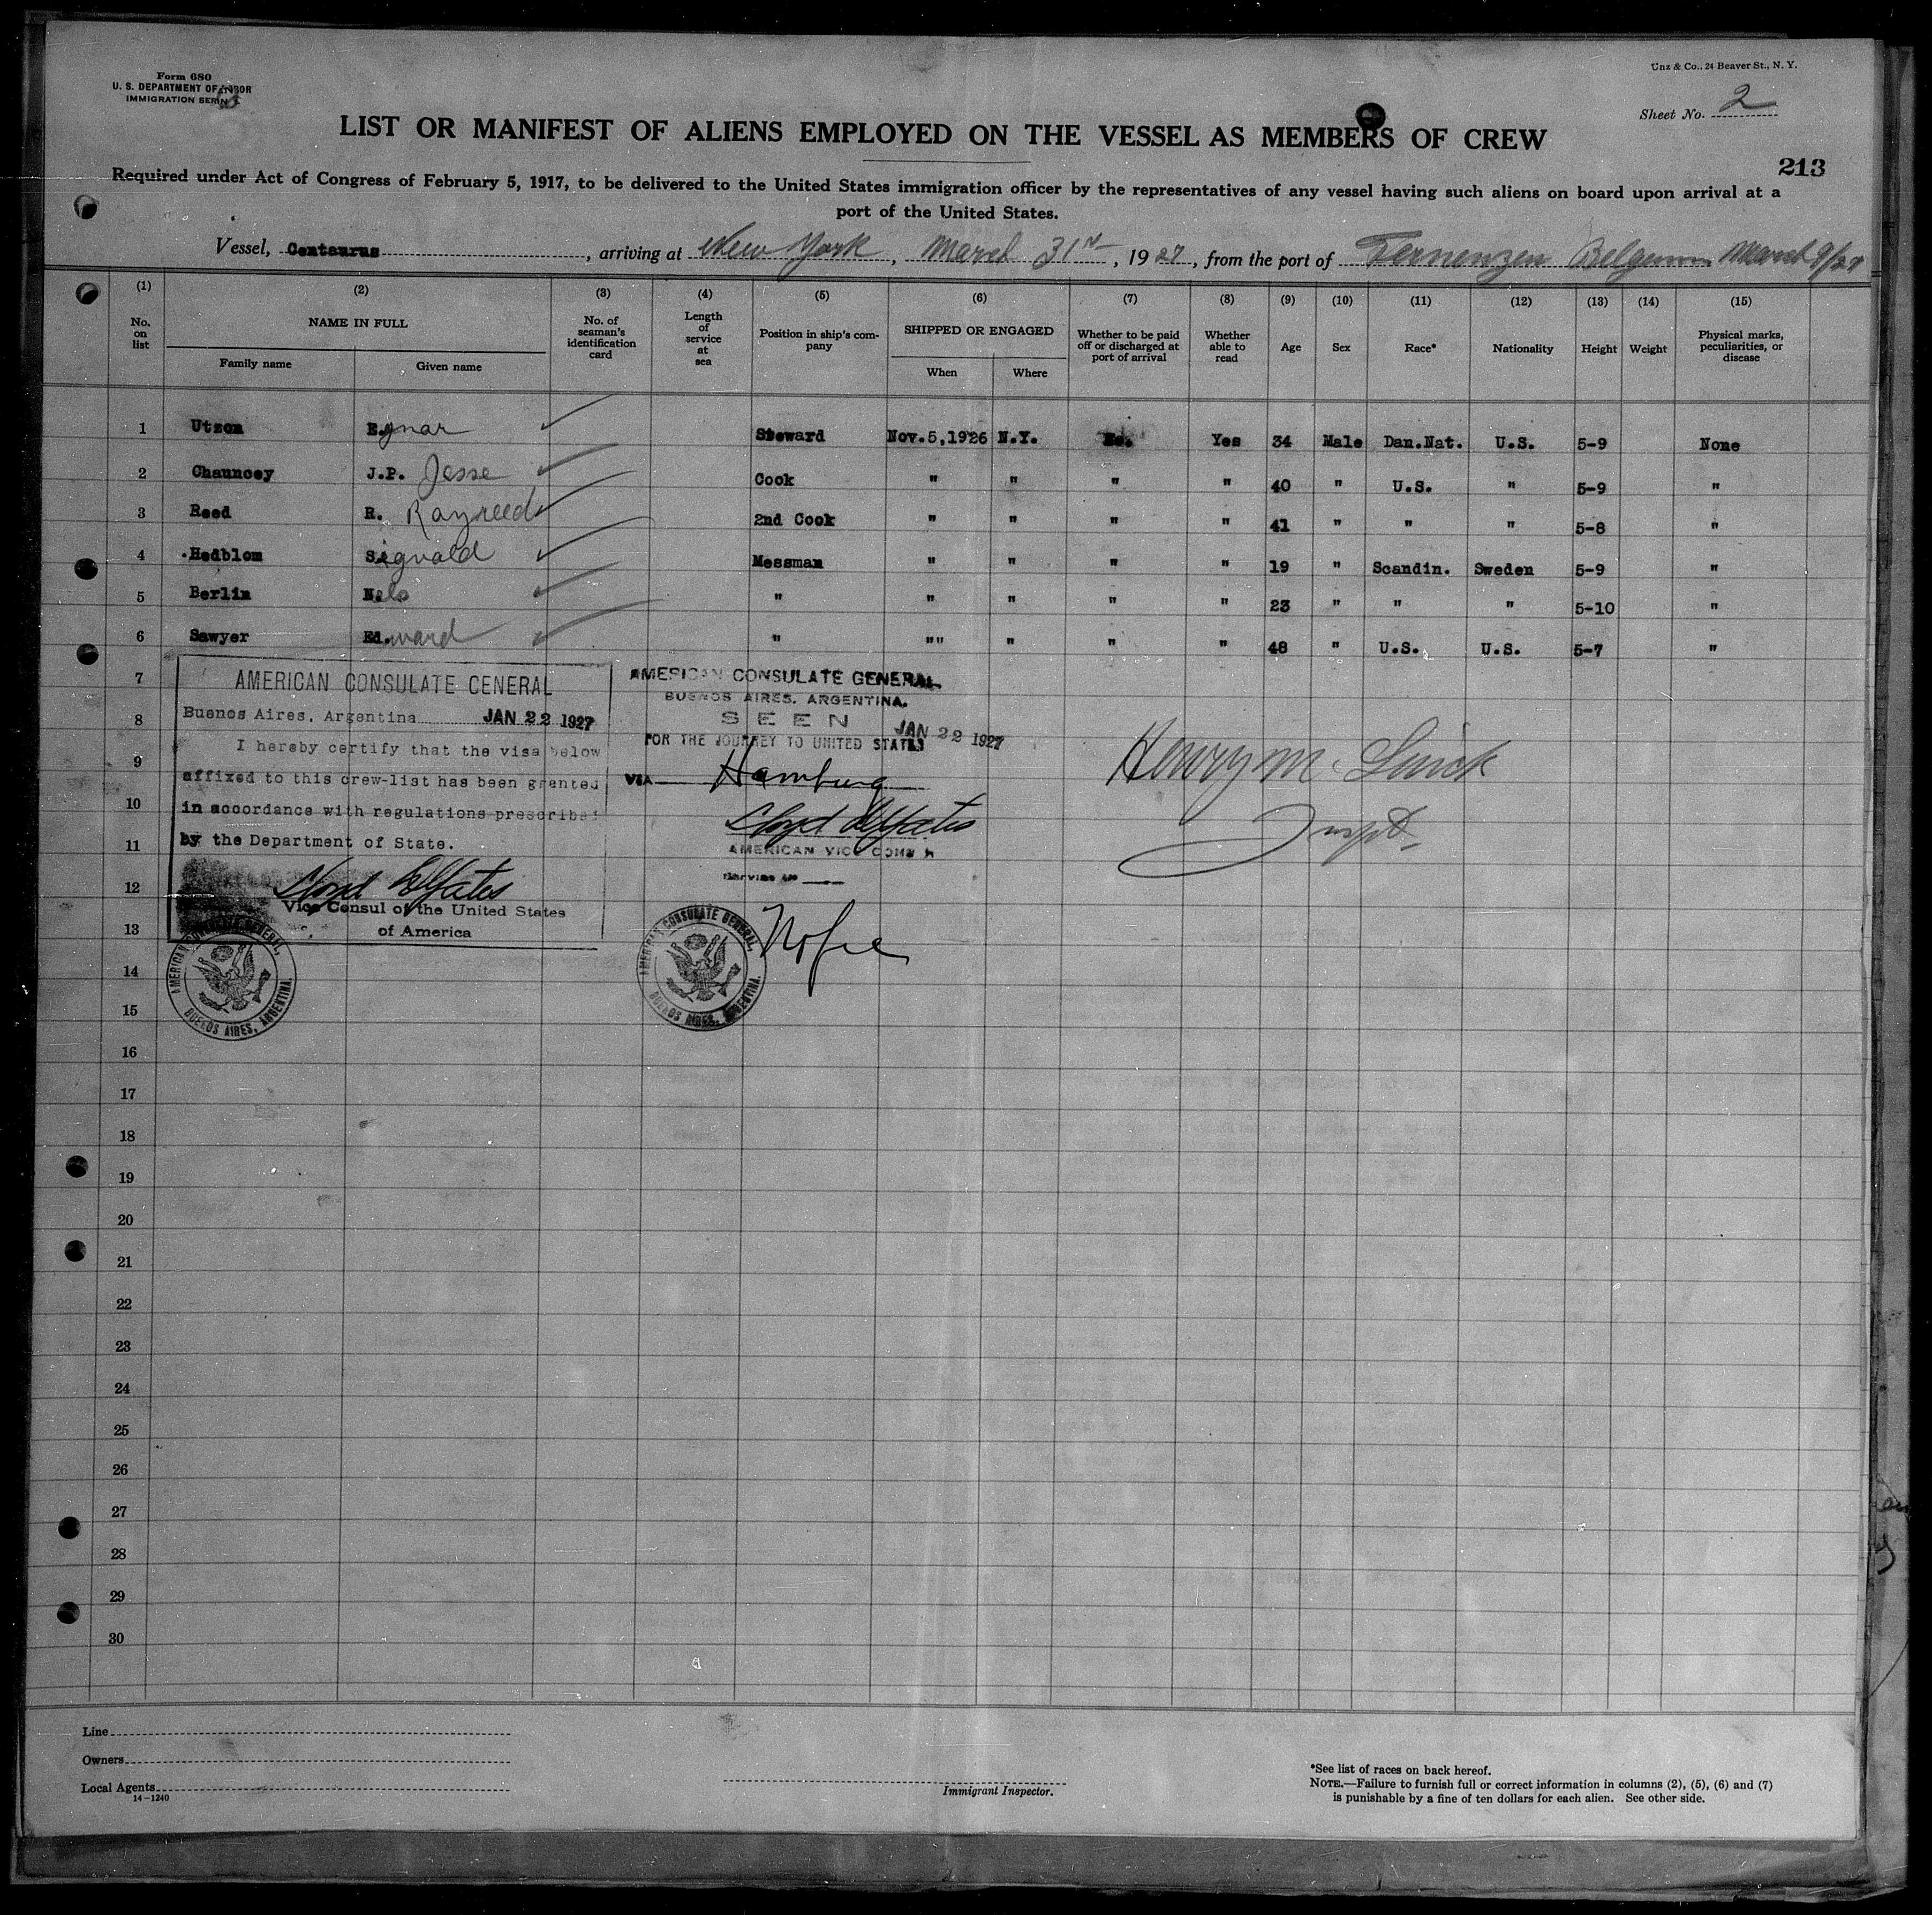 Form 680
U. S. DEPARTMENT OF LABOR
IMMIGRATION SERVICE
Unz & Co., 24 Beaver St., N. Y.
Sheet No. 2
LIST OR MANIFEST OF ALIENS EMPLOYED ON THE VESSEL AS MEMBERS OF CREW
213
Required under Act of Congress of February 5, 1917, to be delivered to the United States immigration officer by the representatives of any vessel having such aliens on board upon arrival at a
port of the United States.
Vessel, Centaurus, arriving at New York, March 31st, 1927, from the port of Ternenzen Belgium March 9/27
(1) (2) (3) (4) (5) (6) (7) (8) (9) (10) (11) (12) (13) (14) (15)
No. on list
NAME IN FULL
Family name Given name
No. of seaman's identification card
Length of service at sea
Position in ship's company
SHIPPED OR ENGAGED
When Where
Whether to be paid off or discharged at port of arrival
Whether able to read
Age Sex Race* Nationality Height Weight
Physical marks, peculiarities, or disease
1 Utzon E.gnar Steward Nov.5,1926 N.Y. No. Yes 34 Male Dan.Nat. U.S. 5-9 None
2 Chauncey J.P. Jesse Cook " " " " 40 " U.S. " 5-9 "
3 Reed R. Rayreed 2nd Cook " " " " 41 " " " 5-8 "
4 Hedblom Signald Messman " " " " 19 " Scandin. Sweden 5-9 "
5 Berlin Nils " " " " " 23 " " " 5-10 "
6 Sawyer Ed.ward " "" " " " 48 " U.S. U.S. 5-7 "
7
8
9
10
11
12
13
14
15
16
17
18
19
20
21
22
23
24
25
26
27
28
29
30
AMERICAN CONSULATE GENERAL
Buenos Aires, Argentina JAN 22 1927
I hereby certify that the visa below
affixed to this crew-list has been granted
in accordance with regulations prescribed
by the Department of State.
Vice Consul of the United States
of America
AMERICAN CONSULATE GENERAL, BUENOS AIRES, ARGENTINA.
AMERICAN CONSULATE GENERAL
BUENOS AIRES, ARGENTINA.
SEEN
JAN 22 1927
FOR THE JOURNEY TO UNITED STATES
VIA Hamburg
AMERICAN VICE CONSUL
Service No
No fee
AMERICAN CONSULATE GENERAL, BUENOS AIRES, ARGENTINA.
Henry M.
Inspt.
Line
Owners
Local Agents
14-1240
Immigrant Inspector.
*See list of races on back hereof.
NOTE.—Failure to furnish full or correct information in columns (2), (5), (6) and (7)
is punishable by a fine of ten dollars for each alien. See other side.